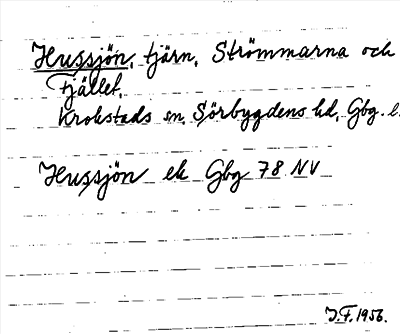 Hussjön, tjärn, Strömmarna och
Fjället.
Krokstads sn, Sörbygdens hd, Gbg. l.
Hussjön ek Gbg 78 NV
J.F. 1956.